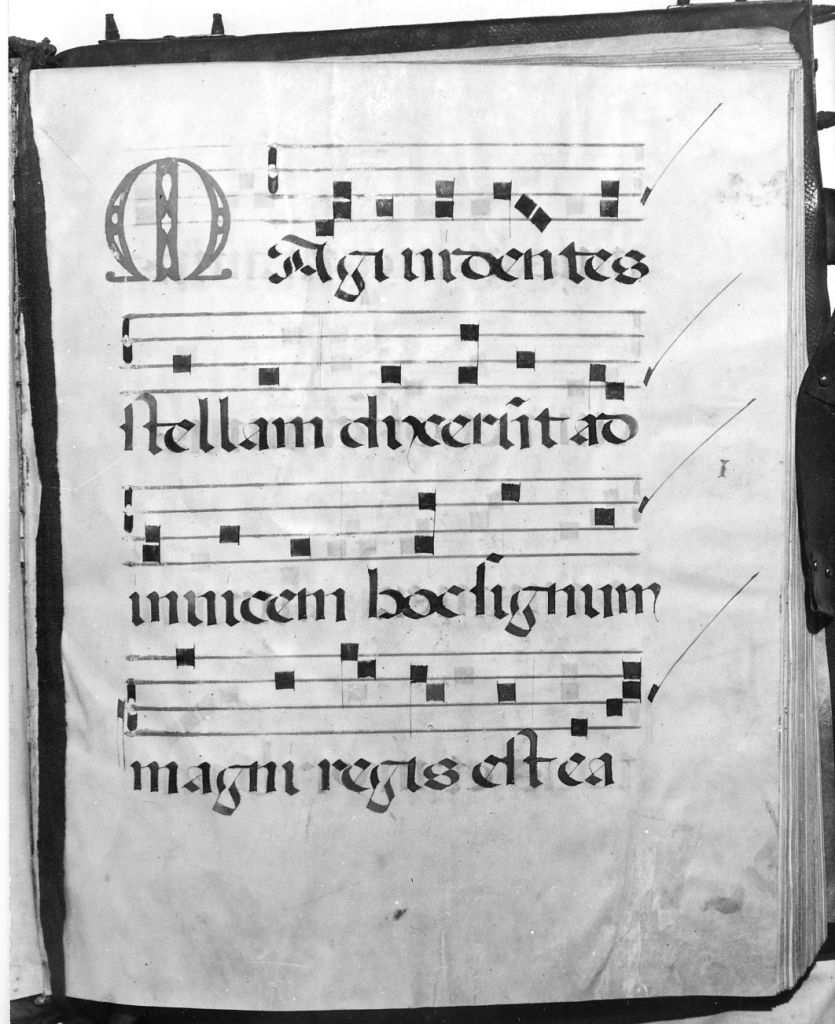 MAgi uidentes
stellam dixerūt ad
inuicem hoc signum
magni regis est ea